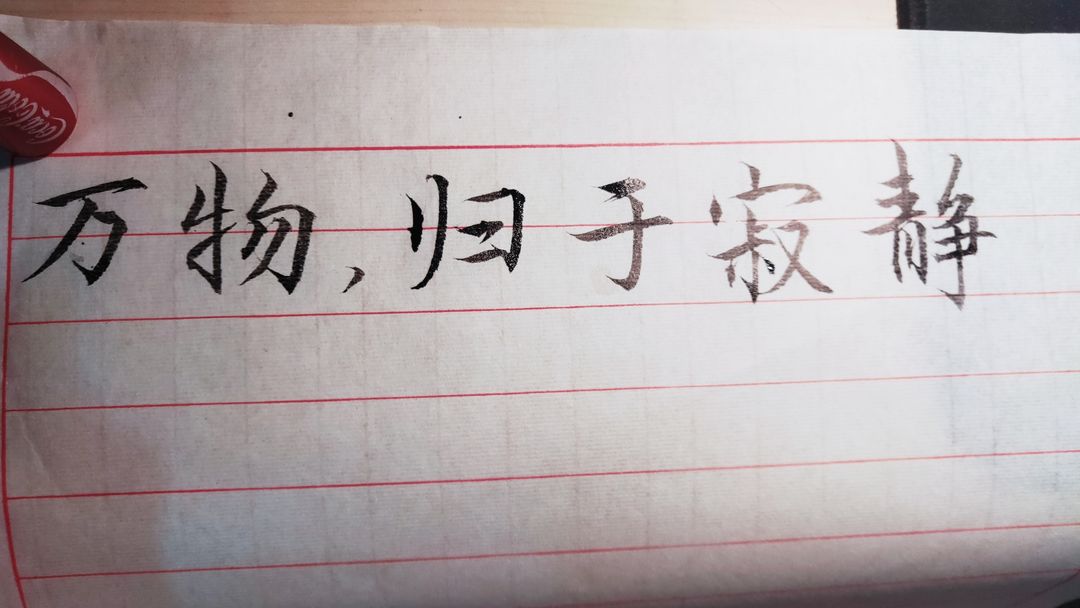 Coca-Cola
万物,归于寂静